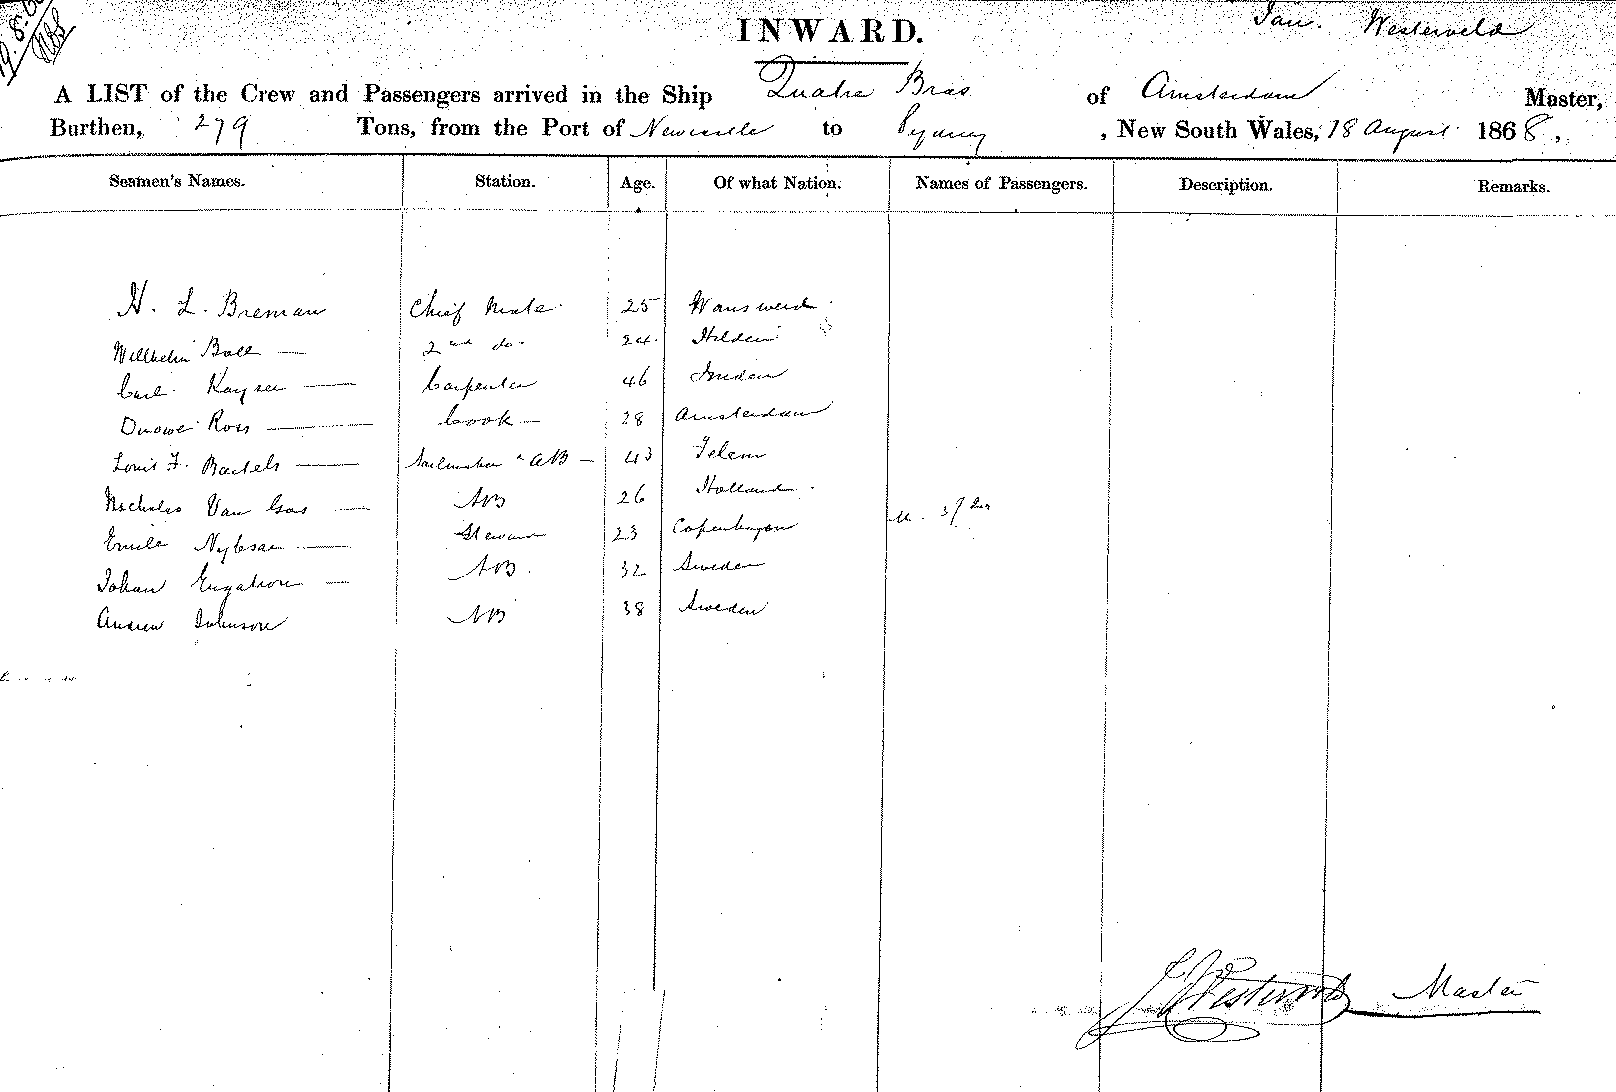 INWARD.
Jan. Westerveld
A LIST of the Crew and Passengers arrived in the Ship Quatre Bras of Amsterdam Master,
Burthen, 279 Tons, from the Port of Newcastle to Sydney, New South Wales, 18 August 1868.
Seamen's Names. Station. Age. Of what Nation. Names of Passengers. Description. Remarks.
H. L. Breman Chief Mate 25 Wanswerd
Willhelm Boll 2nd do. 24 Helder
Carl Kayser Carpenter 46
Ross Cook 28 Amsterdam
Louis F. Bartels Sailmaker & AB 43
Nicholas Van Gos AB 26 Holland
Emile Steward 23 Copenhagen
Johan AB 32 Sweden
Andrew Johnson AB 38 Sweden
J Westerveld Master